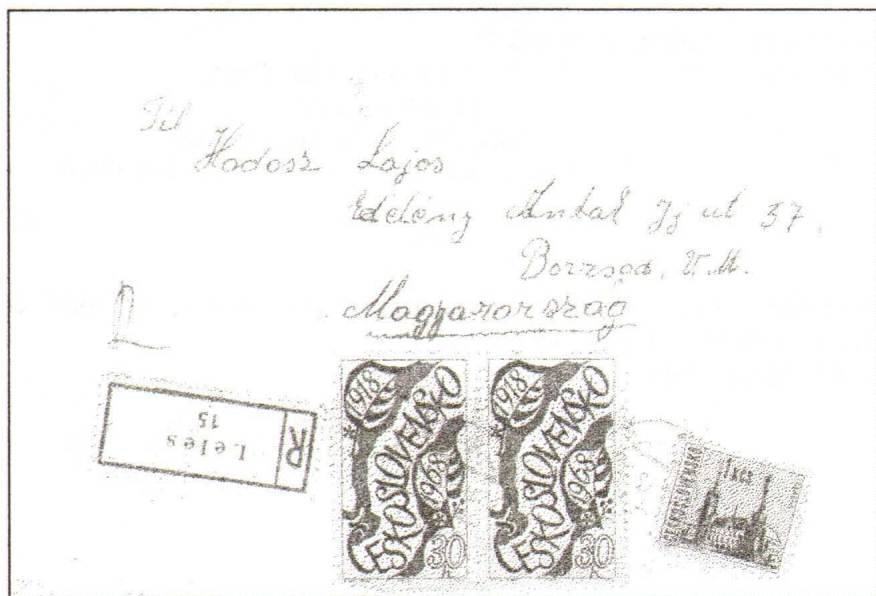 Hodosz Lajos
Edelény Antal Jj ut 37.
Borzsod. V. M.
Magyarország
R
Leles
15
1918
ČESKOSLOVENSKO
1968
30
1918
ČESKOSLOVENSKO
1968
30
ČESKOSLOVENSKO